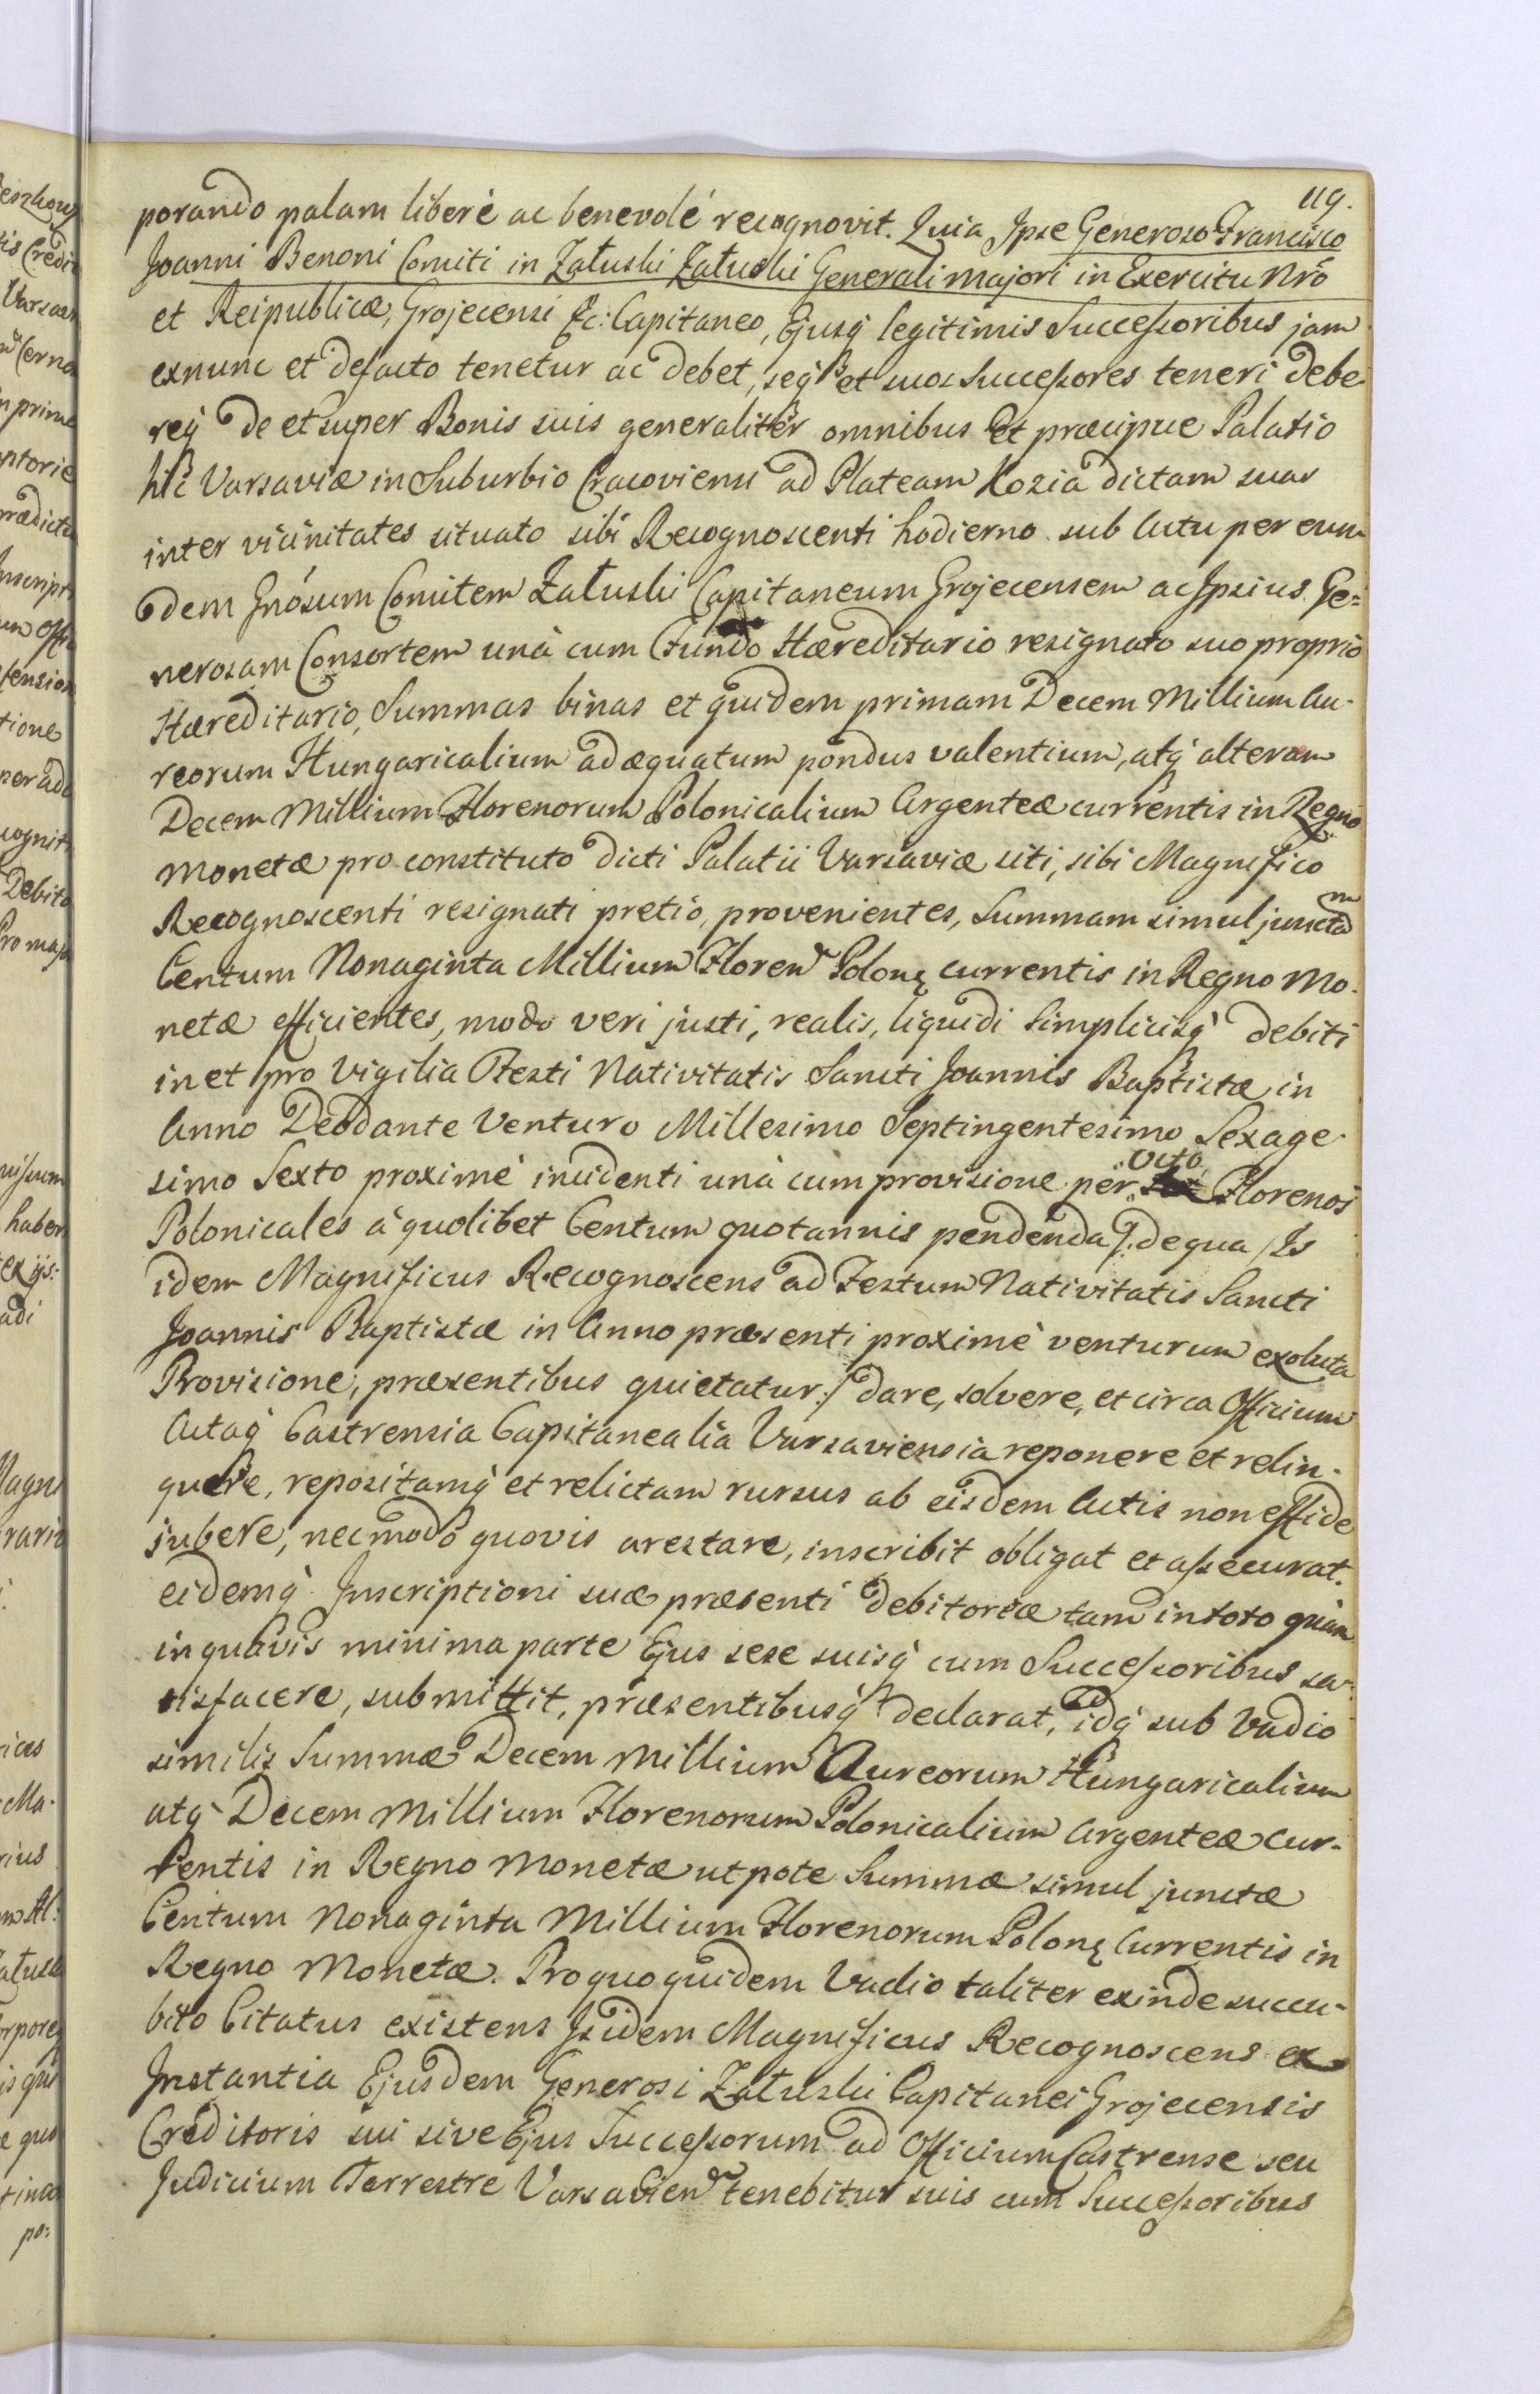 119.
porando palam liberè ac benevolè recognovit. Quia Ipse Generoso Francisco
Joanni Benoni Comiti in Załuski Załuski Generali majori in Exercitu Nrõ
et Reipublicæ, Grojecensi &c: Capitaneo, Ejusq́ legitimis Successoribus jam
exnunc et defacto tenetur ac debet, seq́ et suos Successores teneri debe-
req́ de et super Bonis suis generalitèr omnibus et præcipue Palatio
hìc Varsaviæ in Suburbio Cracoviensi ad Plateam Kozia dictam suas
inter vicinitates situato sibi Recognoscenti hodierno sub Actu per eun-
dem Gnósum Comitem Załuski Capitaneum Grojecensem ac Ipsius Ge=
nerosam Consortem unà cum Fundo Hæreditario resignato suo proprio
Hæreditario, Summas binas et quidem primam Decem Millium Au-
reorum Hungaricalium adæquatum pondus valentium, atq́ alteram
Decem Millium Florenorum Polonicalium Argenteæ currentis in Regno
Monetæ pro constituto dicti Palatii Varsaviæ siti, sibi Magnifico
Recognoscenti resignati pretio, provenientes, Summam simul junctam
Centum Nonaginta Millium Floren Polonę currentis in Regno Mo-
netæ efficientes, modo veri justi, realis, liquidi simplicisq́ debiti
in et pro Vigilia Festi Nativitatis Sancti Joannis Baptistæ in
Anno Deo dante Venturo Millesimo Septingentesimo Sexage-
simo Sexto proximè incidenti unà cum provisione per octo Florenos
Polonicales à quolibet Centum quotannis pendenda /: de qua Is
idem Magnificus Recognoscens ad Festum Nativitatis Sancti
Joannis Baptistæ in Anno præsenti proximè venturum exoluta
Provisione, præsentibus quietatur :/ dare, solvere, et circa Officium
Actaq́ Castrensia Capitanealia Varsaviensia reponere et relin-
quere, repositamq́ et relictam rursus ab eisdem Actis non effide
jubere, nec modo quovis arestare, inscribit obligat et assecurat.
eidemq́ Inscriptioni suæ præsenti debitoriæ tam in toto quàm
in quavis minima parte Ejus sese suisq́ cum Successoribus sa-
tisfacere, submittit, præsentibusq́ declarat, idq́ sub Vadio
similis Summæ Decem Millium Aureorum Hungaricalium
atq́ Decem Millium Florenorum Polonicalium Argenteæ cur-
rentis in Regno Monetæ utpote Summæ simul junctæ
Centum Nonaginta Millium Florenorum Polonę Currentis in
Regno Monetæ. Pro quo quidem Vadio taliter exinde succu-
bito Citatus existens Isidem Magnificus Recognoscens ex
Instantia Ejusdem Generosi Załuski Capitanei Grojecensis
Creditoris sui sive Ejus Successorum ad Officium Castrense seu
Judicium Terrestre Varsavien tenebitur suis cum Successoribus